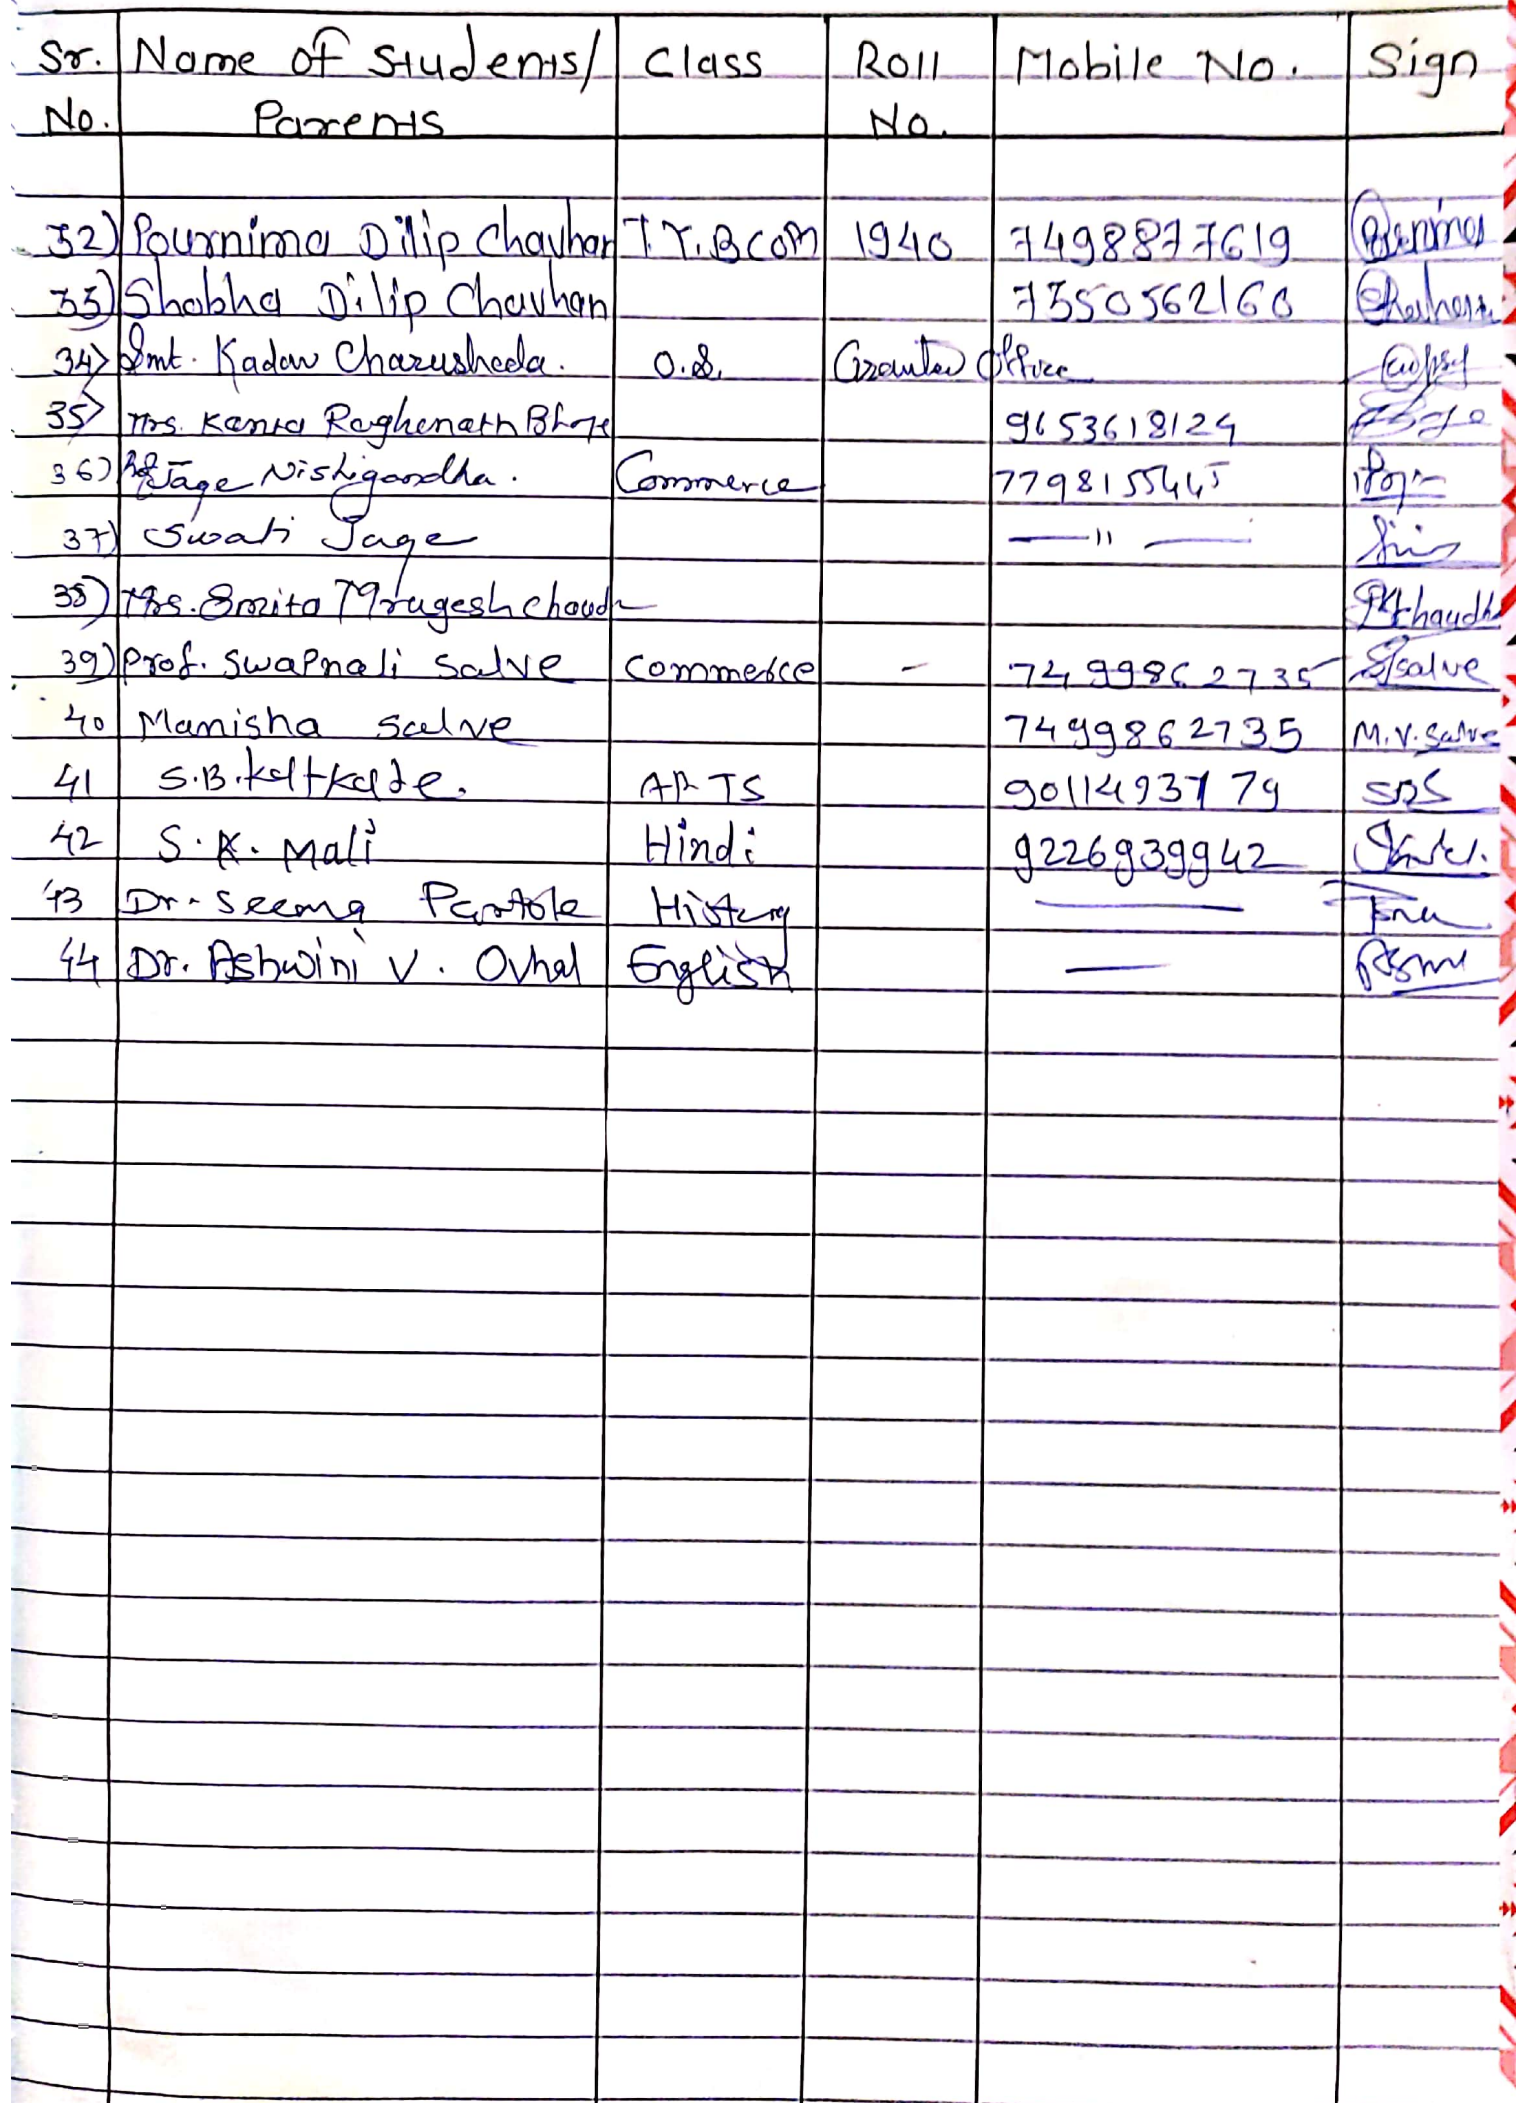 Sr. Name of Students/ Class Roll Mobile No. Sign
No. Parents No.
32) Pournima Dilip Chavhan T.Y.BCOM 1940 7498877619
33) Shobha Dilip Chavhan 7350562160 Chavhan
34) Smt. Kadam Charusheela. O.S. Granted Office
35) Mrs. Raghenath 9653618124
36) Jage Nishigandha. Commerce 7798155445
37) Swati Jage —11—
38) Mrs. Smita Mrugesh Chaudh
39) Prof. Swapnali Salve Commerce - 7499862735 Salve
40 Manisha Salve 7499862735 M.V. Salve
41 S.B. ARTS 9011493779
42 S.K. Mali Hindi 9226939942
43 Dr. Seema History —
44 Dr. Ashwini V. Ovhal English —